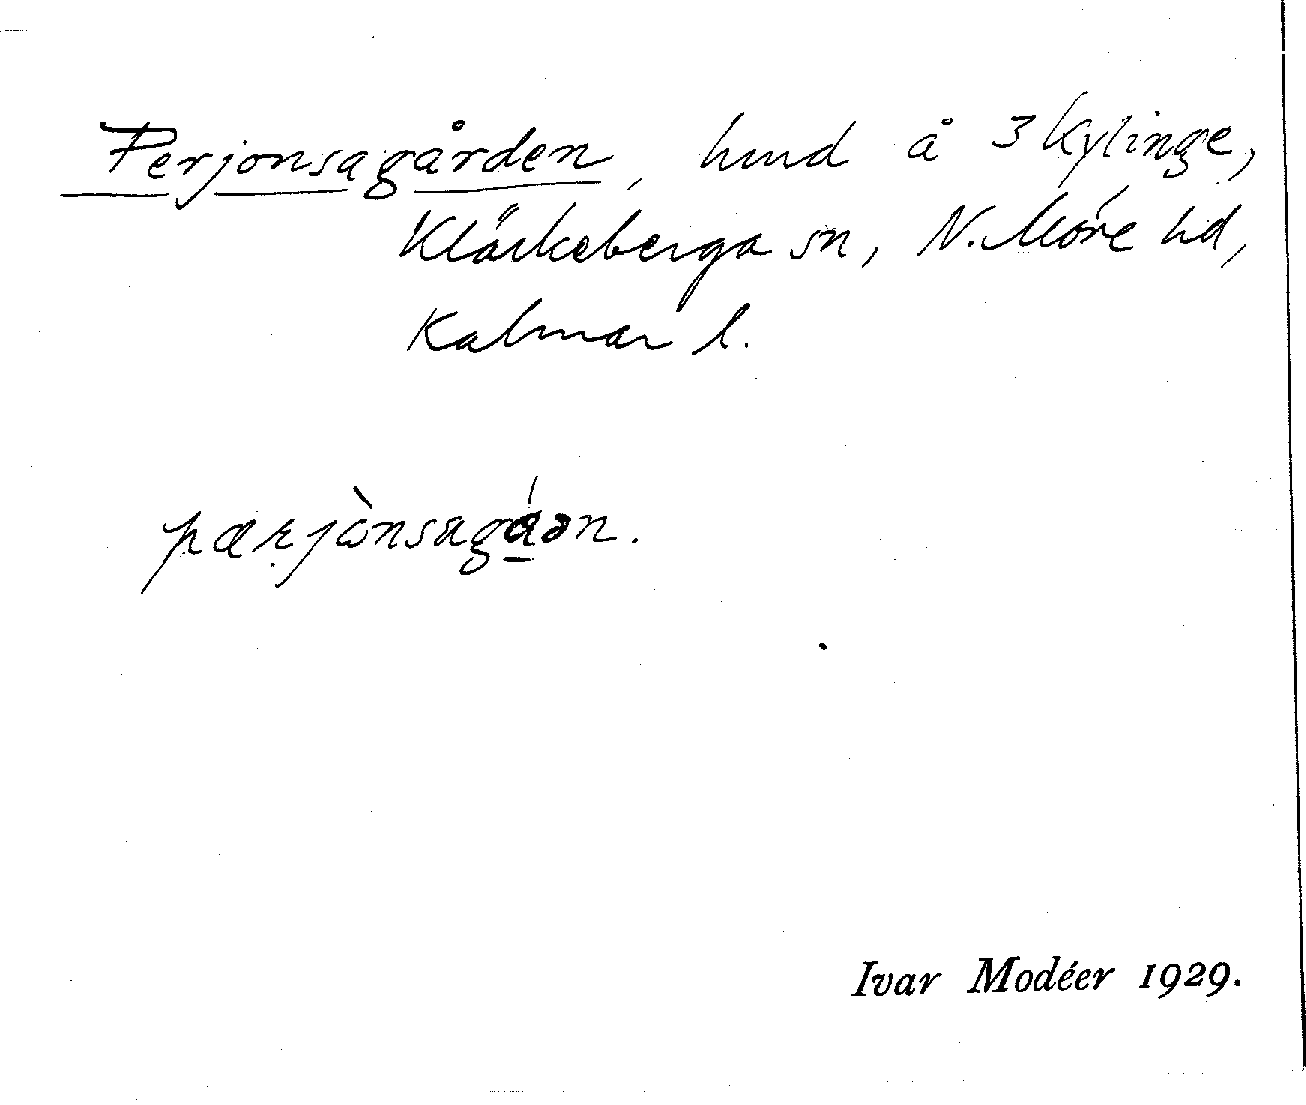 Perjonsagården, hmd å 3 Kylinge,
Kläckeberga sn, N. Möre hd,
Kalmar l.
pæRjònsagáən.
Ivar Modéer 1929.